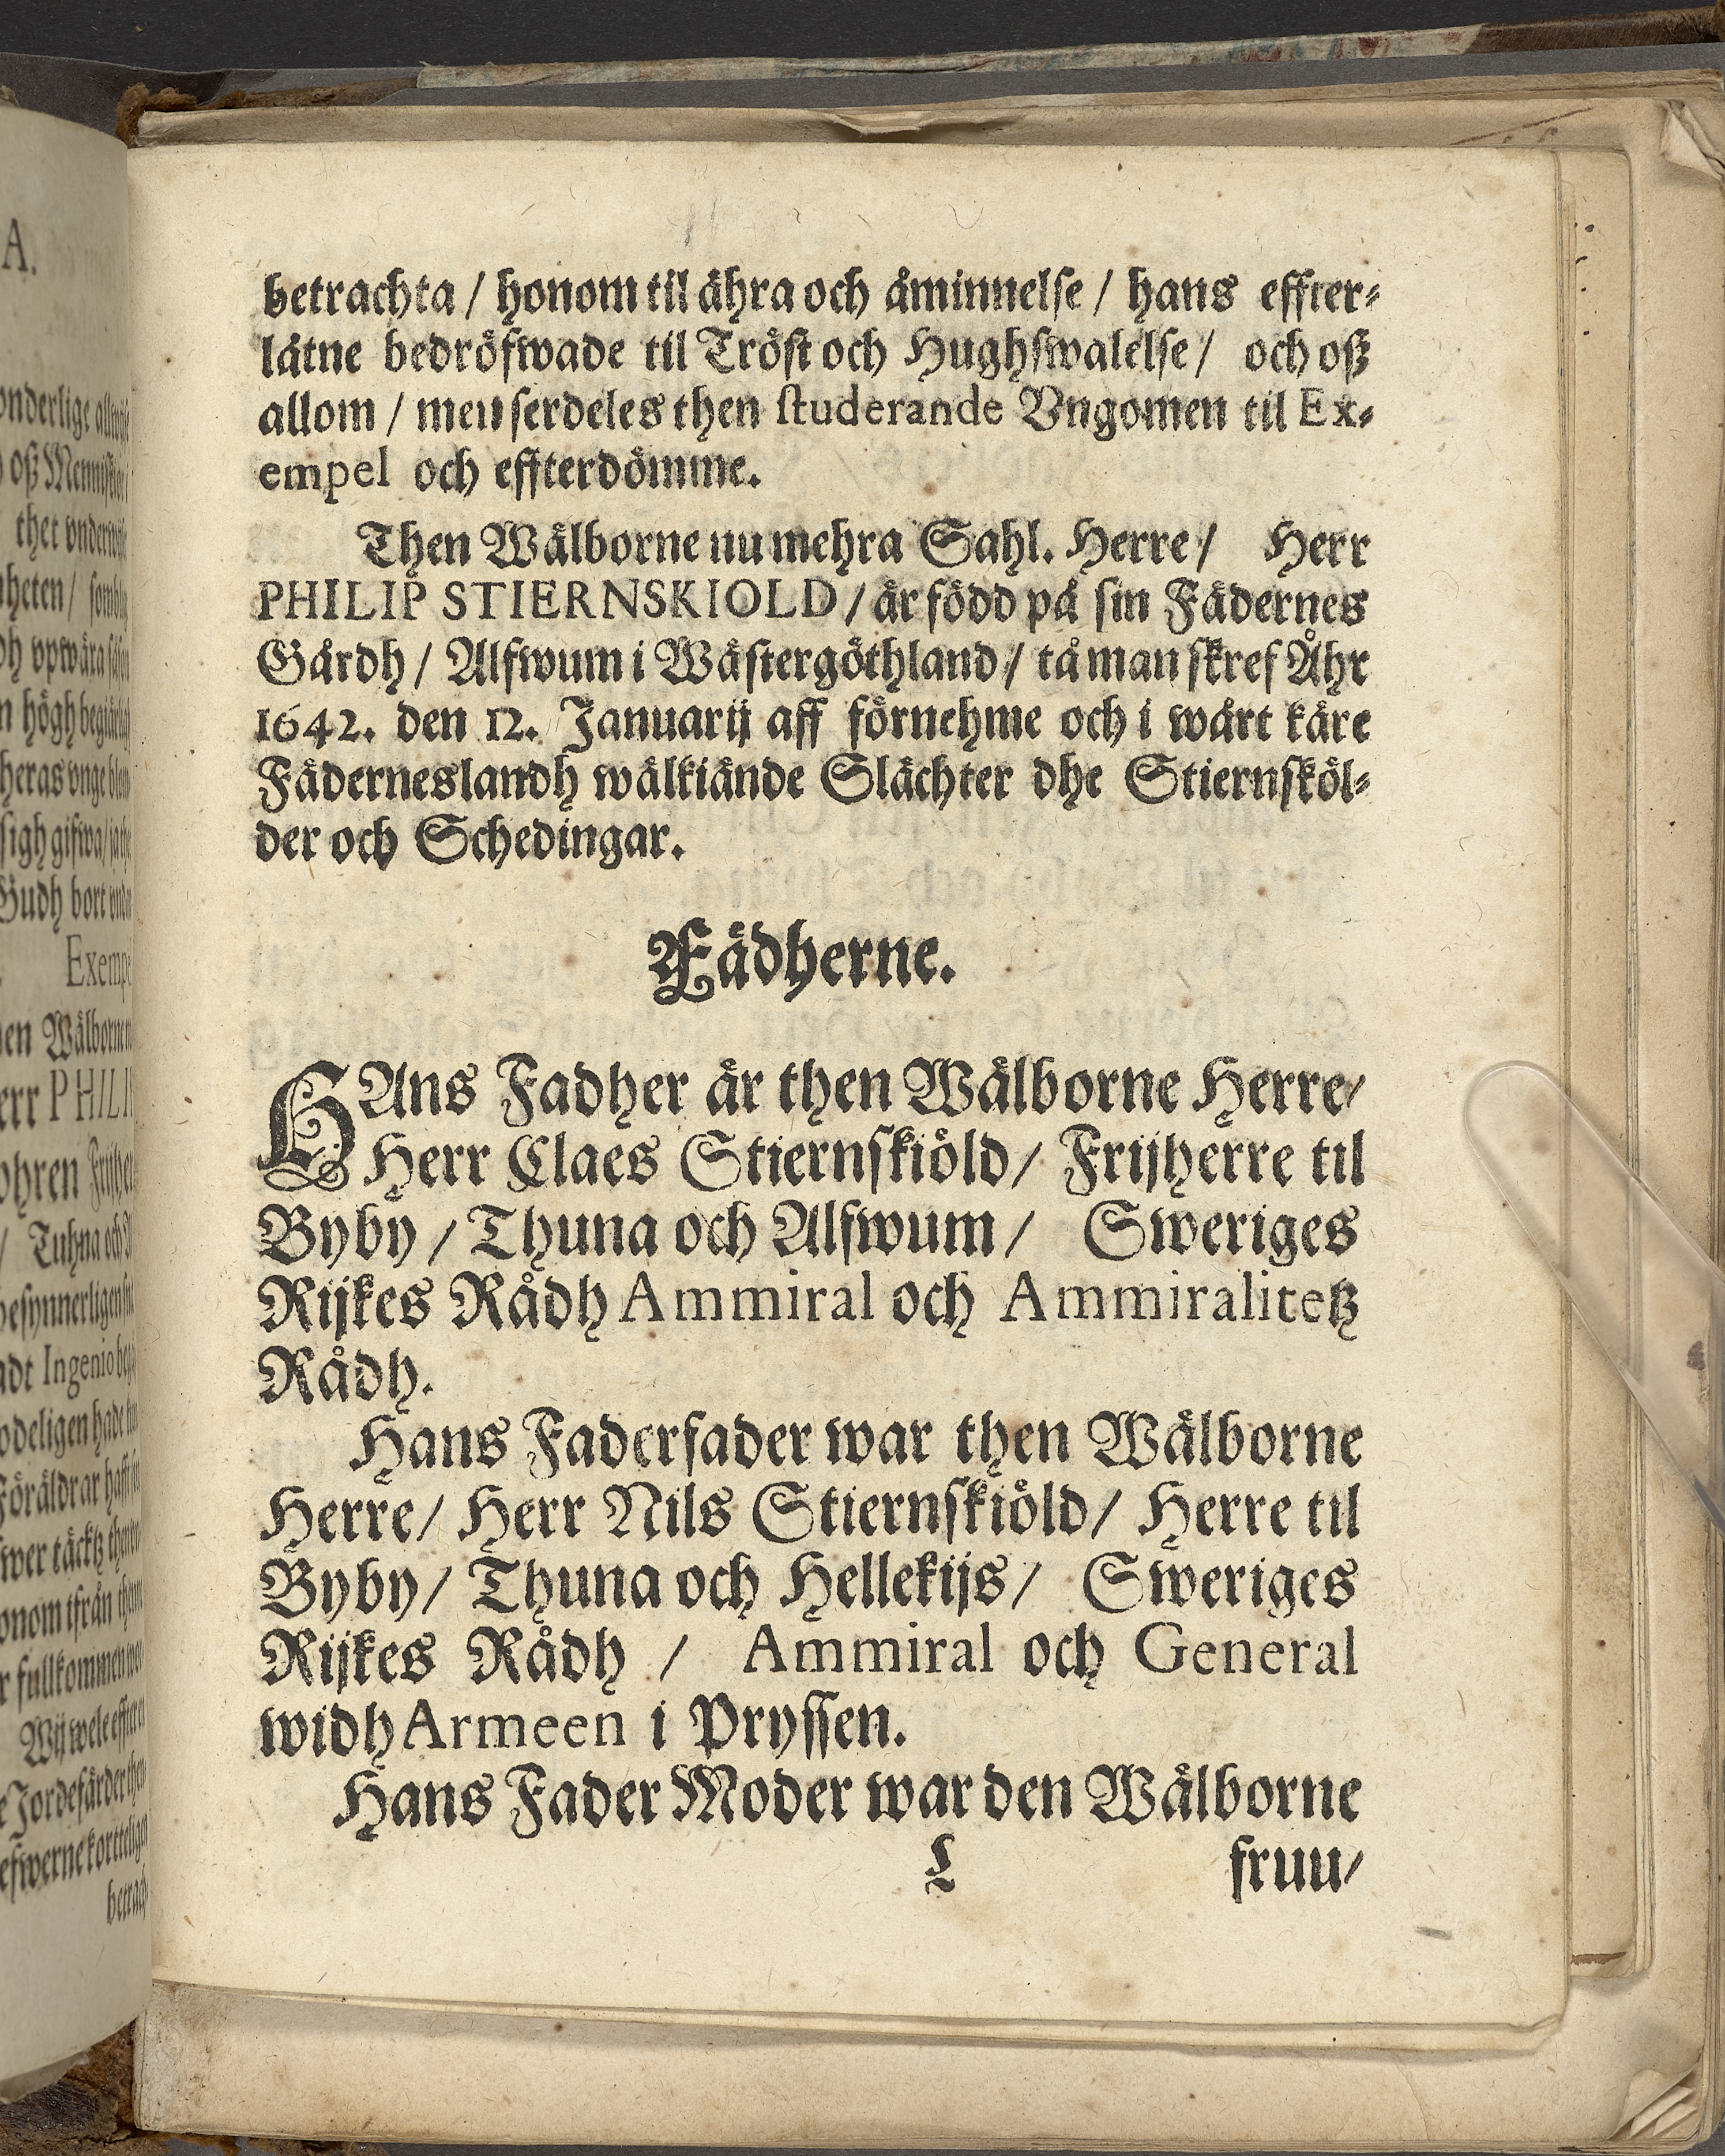 betrachta / honom til ähra och åminnelse / hans effter-
låtne bedröfwade til Tröst och Hughswalelse / och oß
allom / men serdeles then studerande Vngomen til Ex-
empel och effterdömme.
Then Wälborne nu mehra Sahl. Herre / Herr
PHILIP STIERNSKIOLD / är född på sin Fädernes
Gårdh / Alfwum i Wästergöthland / tå man skref Åhr
1642. den 12. Januarij aff förnehme och i wårt käre
Fäderneslandh wälkiände Slächter dhe Stiernsköl-
der och Schedingar.
Fädherne.
HAns Fadher är then Wälborne Herre /
Herr Claes Stiernskiöld / Frijherre til
Byby / Thuna och Alfwum / Sweriges
Rijkes Rådh Ammiral och Ammiralitetz
Rådh.
Hans Faderfader war then Wälborne
Herre / Herr Nils Stiernskiöld / Herre til
Byby / Thuna och Hellekijs / Sweriges
Rijkes Rådh / Ammiral och General
widh Armeen i Pryssen.
Hans Fader Moder war den Wälborne
L fruu /